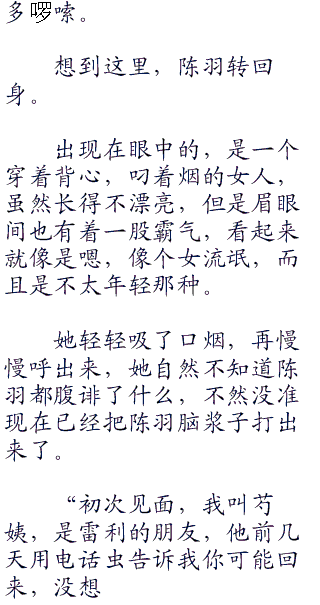 多啰嗦。
想到这里，陈羽转回
身。
出现在眼中的，是一个
穿着背心，叼着烟的女人，
虽然长得不漂亮，但是眉眼
间也有着一股霸气，看起来
就像是嗯，像个女流氓，而
且是不太年轻那种。
她轻轻吸了口烟，再慢
慢呼出来，她自然不知道陈
羽都腹诽了什么，不然没准
现在已经把陈羽脑浆子打出
来了。
“初次见面，我叫芍
姨，是雷利的朋友，他前几
天用电话虫告诉我你可能回
来，没想